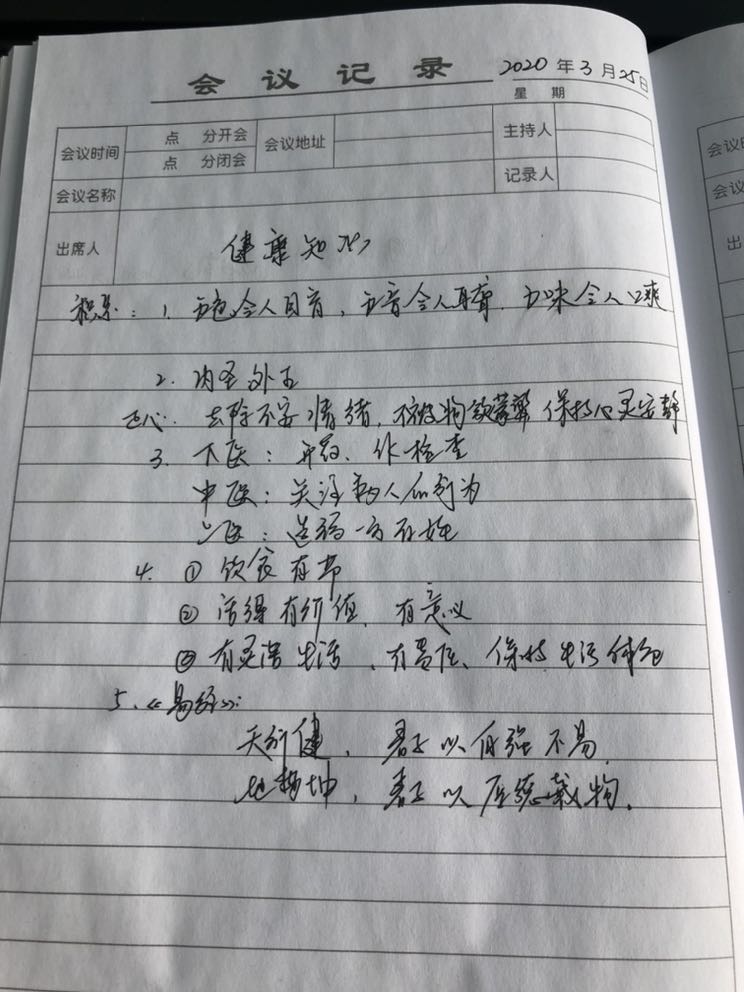 会议记录 2020年3月25日
星期
会议时间 点 分开会 会议地址 主持人
点 分闭会
会议名称 记录人
出席人 健康知识
积累：1. 五色令人目盲，五音令人耳聋，五味令人口爽
2. 内圣外王
正心：去除不安情绪，不被物欲蒙蔽 保持心灵安静
3. 下医：开药、作检查
中医：关注病人的行为
上医：造福一方百姓
4. ① 饮食有节
② 活得有价值、有意义
③ 有灵活生活、有责任、保持生活
5.《易经》：
天行健，君子以自强不易
地势坤，君子以厚德载物.
会议时
会议
出